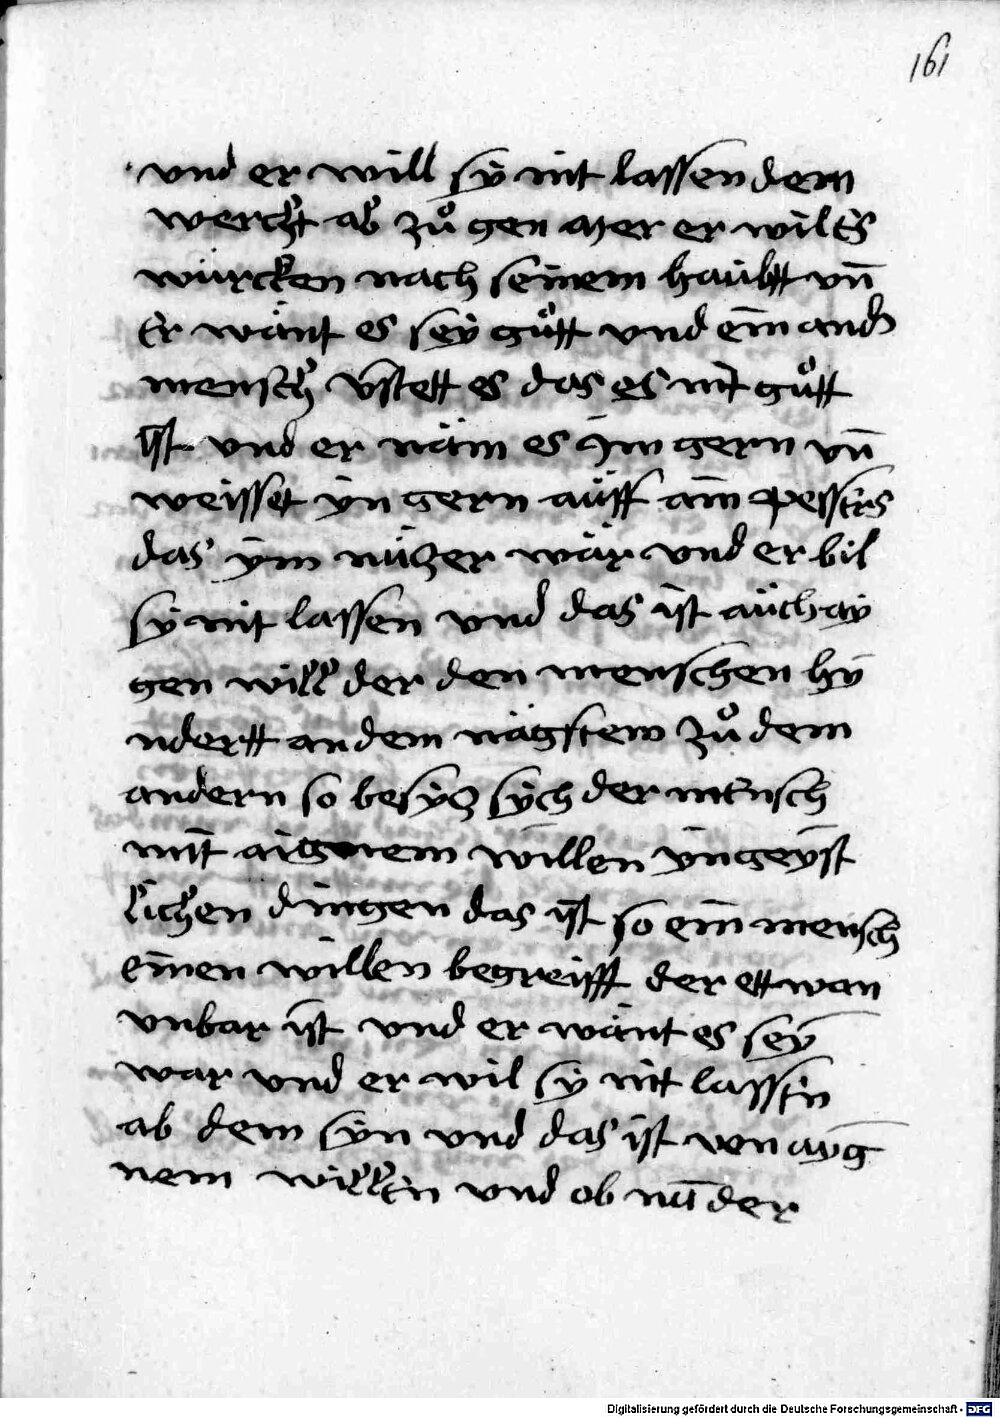 161
vnd er will sÿ nit lassen dem
werch̉t ab zů gen aƷer er wil es
würcken nach seinem haübtt vn̄
Er wänt es seÿ gůtt vnd ein and̉
mensch v̉stett es das es nit gůtt
ist vnd er näm es ÿm gern vn̄
weisset ÿn gern aüff ain pessers
das ÿm nüczer wär vnd er bil
sÿ nit lassen vnd das ist aüch aÿ
gen will der den menschen hÿ
ndertt an dem nägstem zů dem
andern so besÿcz sÿch der mensch
mit aignem willen ÿn geÿst
lichen dingen das ist so ein mensch
einen willen begreifft der ettwan
vnbar ist vnd er wänt es seÿ
war vnd er wil sÿ nitt lassen
ab dem sÿn vnd das ist von aÿg
nem willen vnd ob nū der
Digitalisierung gefördert durch die Deutsche Forschungsgemeinschaft - DFG